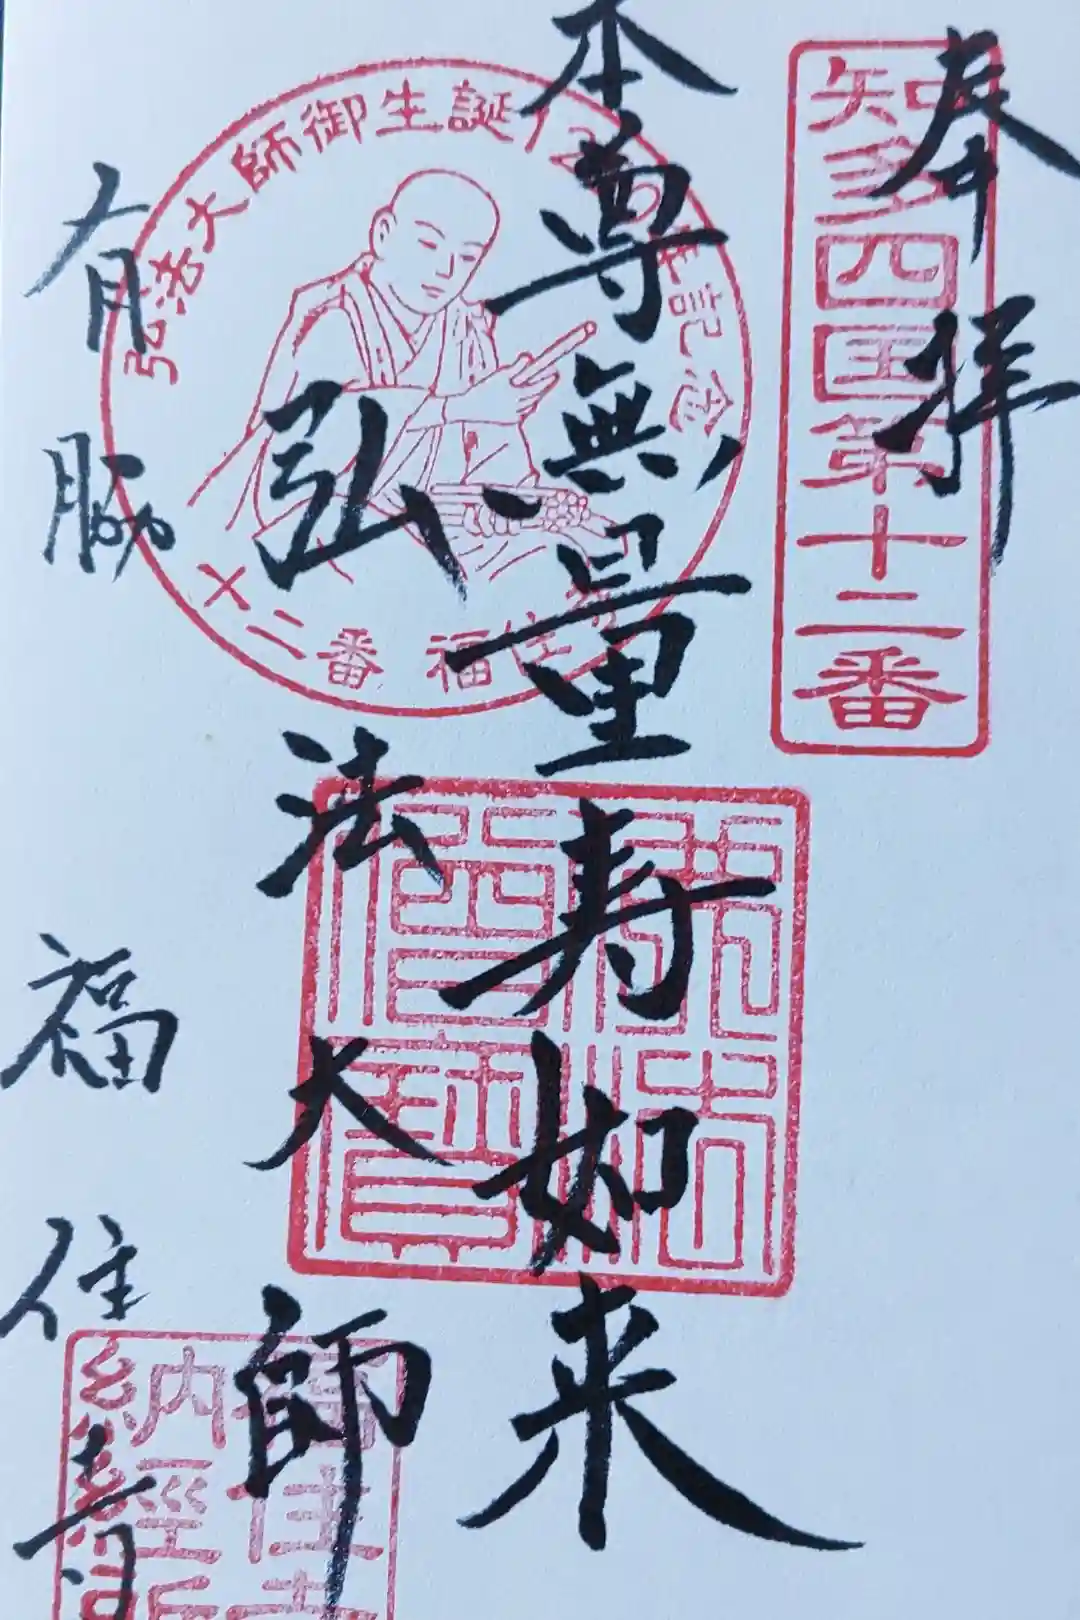 奉拝
知多四国第十二番
本尊無量寿如来
弘法大師
弘法大師御生誕
記念
十二番 福住寺
佛法僧寶
有脇 福住寺
福住寺
納經